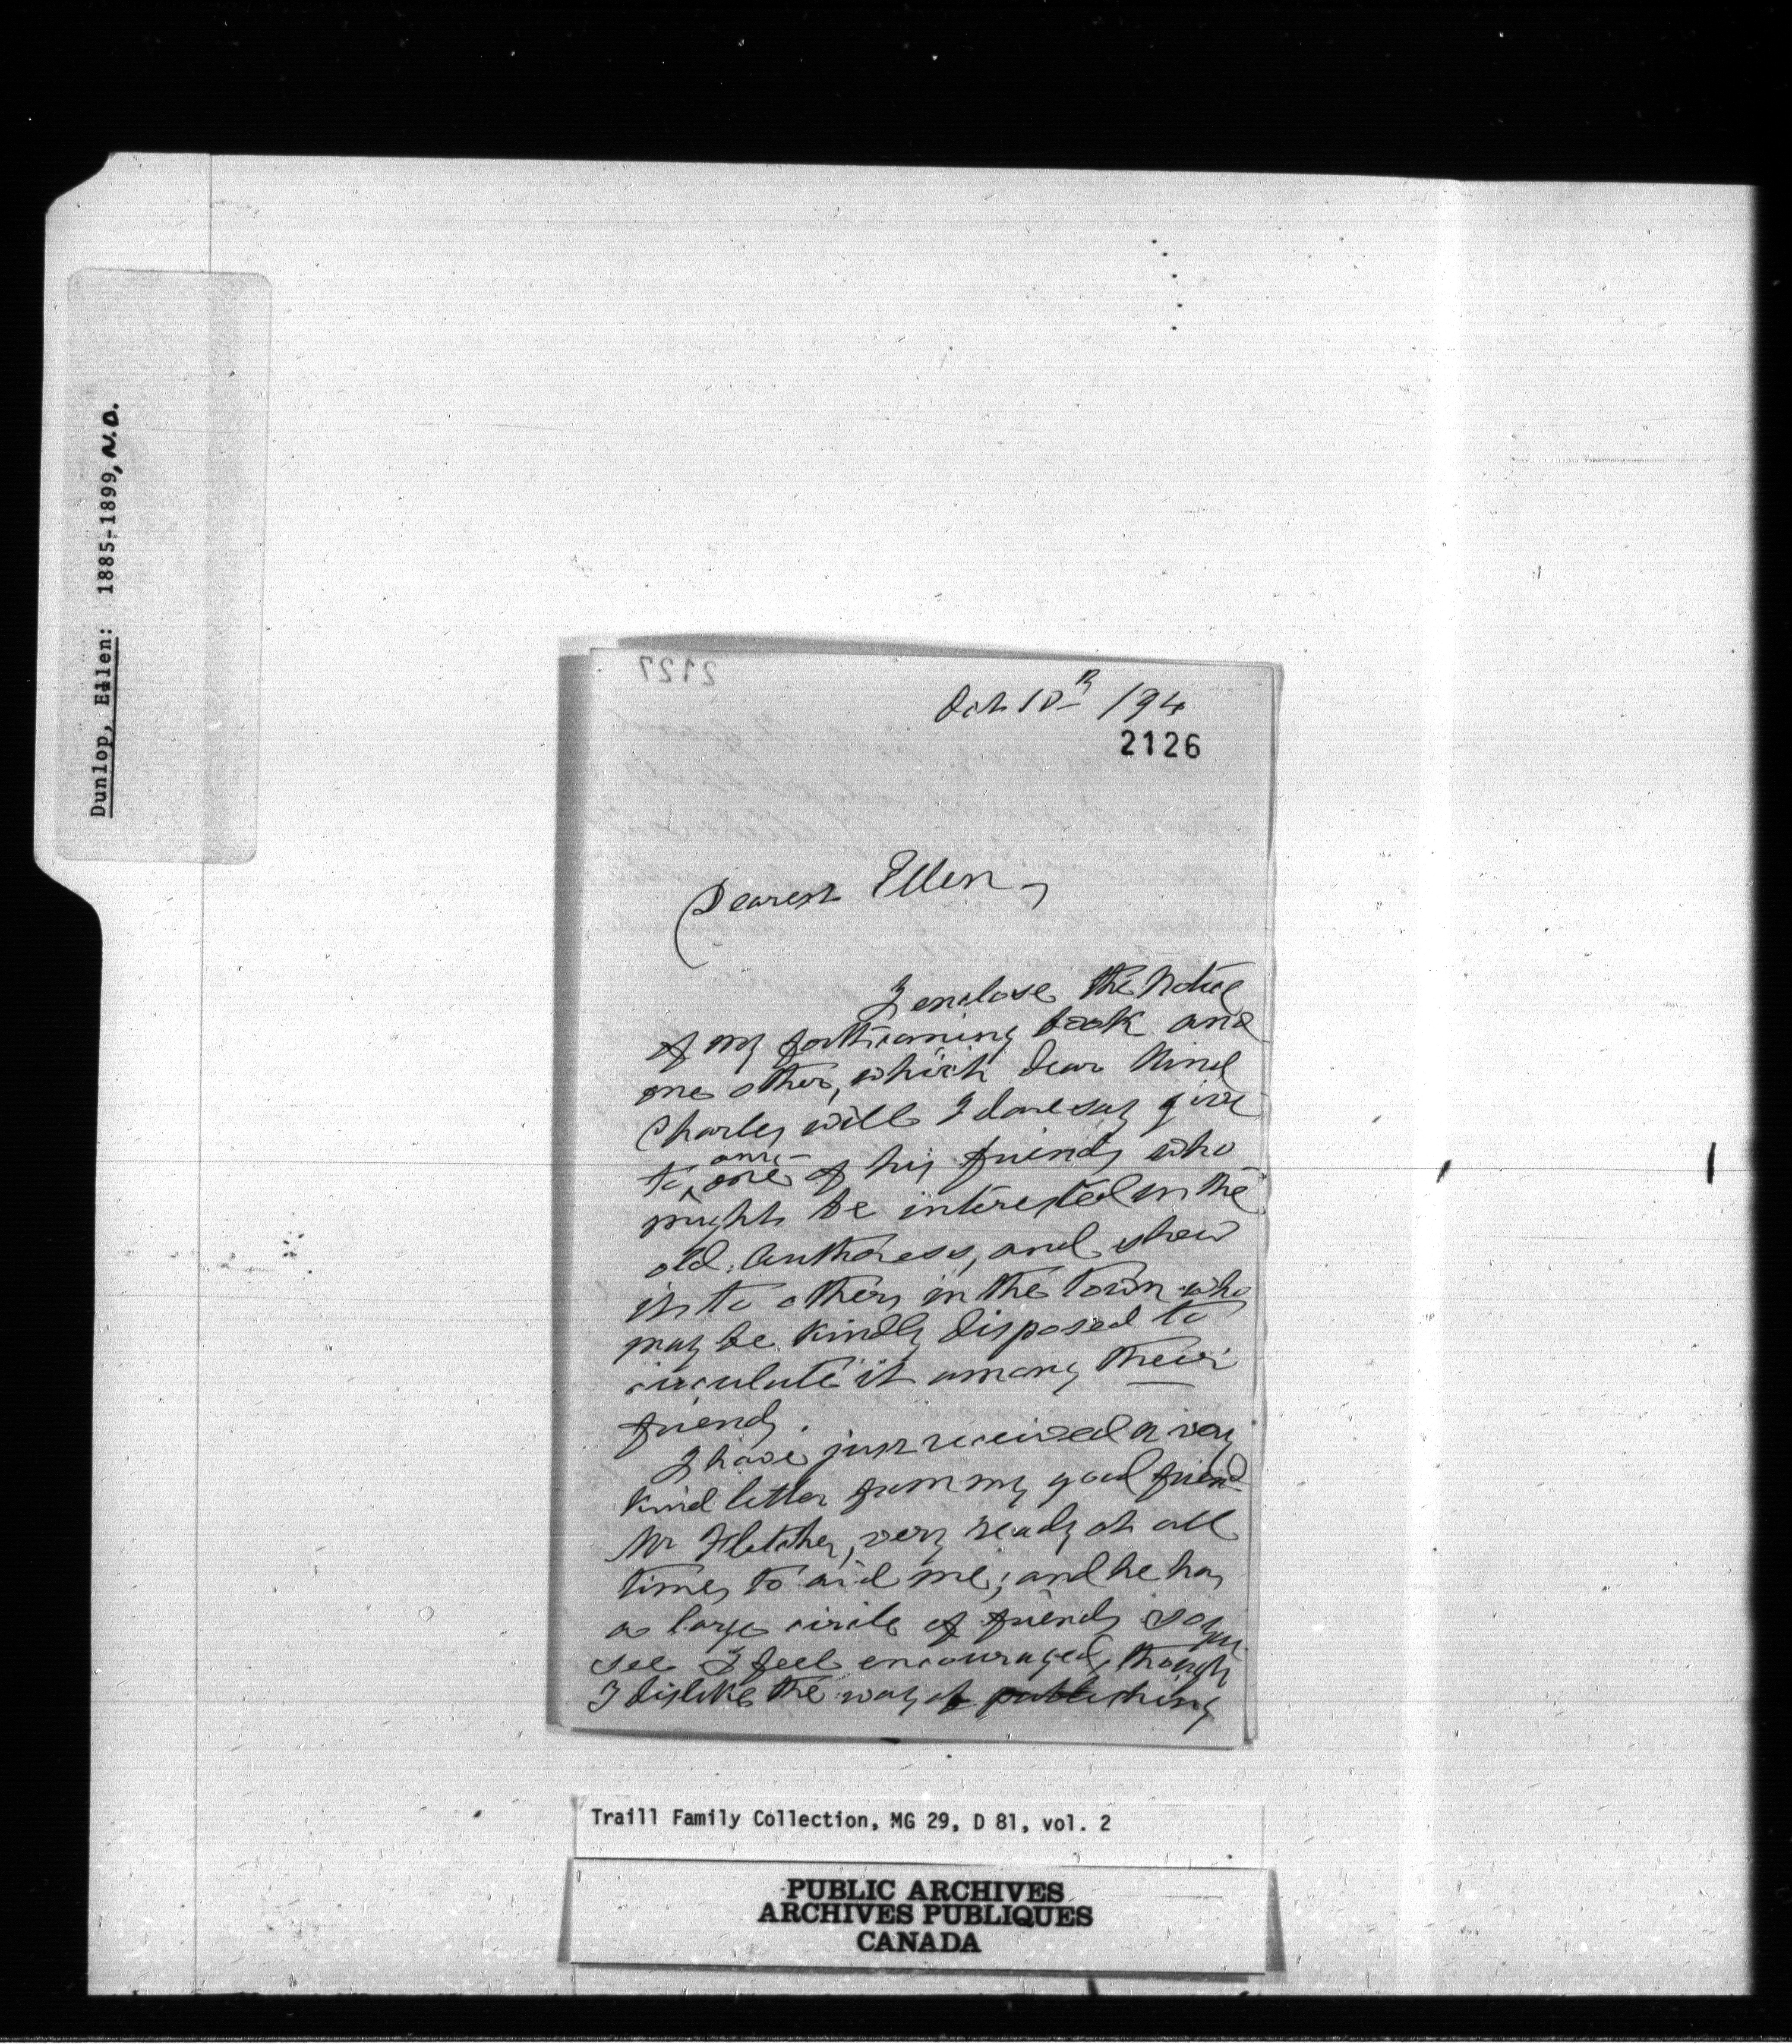 Dunlop, Ellen: 1885-1899, N.D.
2127
Oct 10th /94
2126
Dearest Ellen,
I enclose the Notice
of my forthcoming book and
one other, which dear kind
Charley will I daresay give
any
to one of his friends who
might be interested in the
old Authoress, and shew
it to others in the Town who
may be kindly disposed to
circulate it among their
friends.
I have just received a very
kind letter from my good friend
Mr Fletcher, very ready at all
times to aid me; and he has
a large circle of friends so you
see I feel encouraged, though
I dislike the way of publishing
Traill Family Collection, MG 29, D 81, vol. 2
PUBLIC ARCHIVES
ARCHIVES PUBLIQUES
CANADA